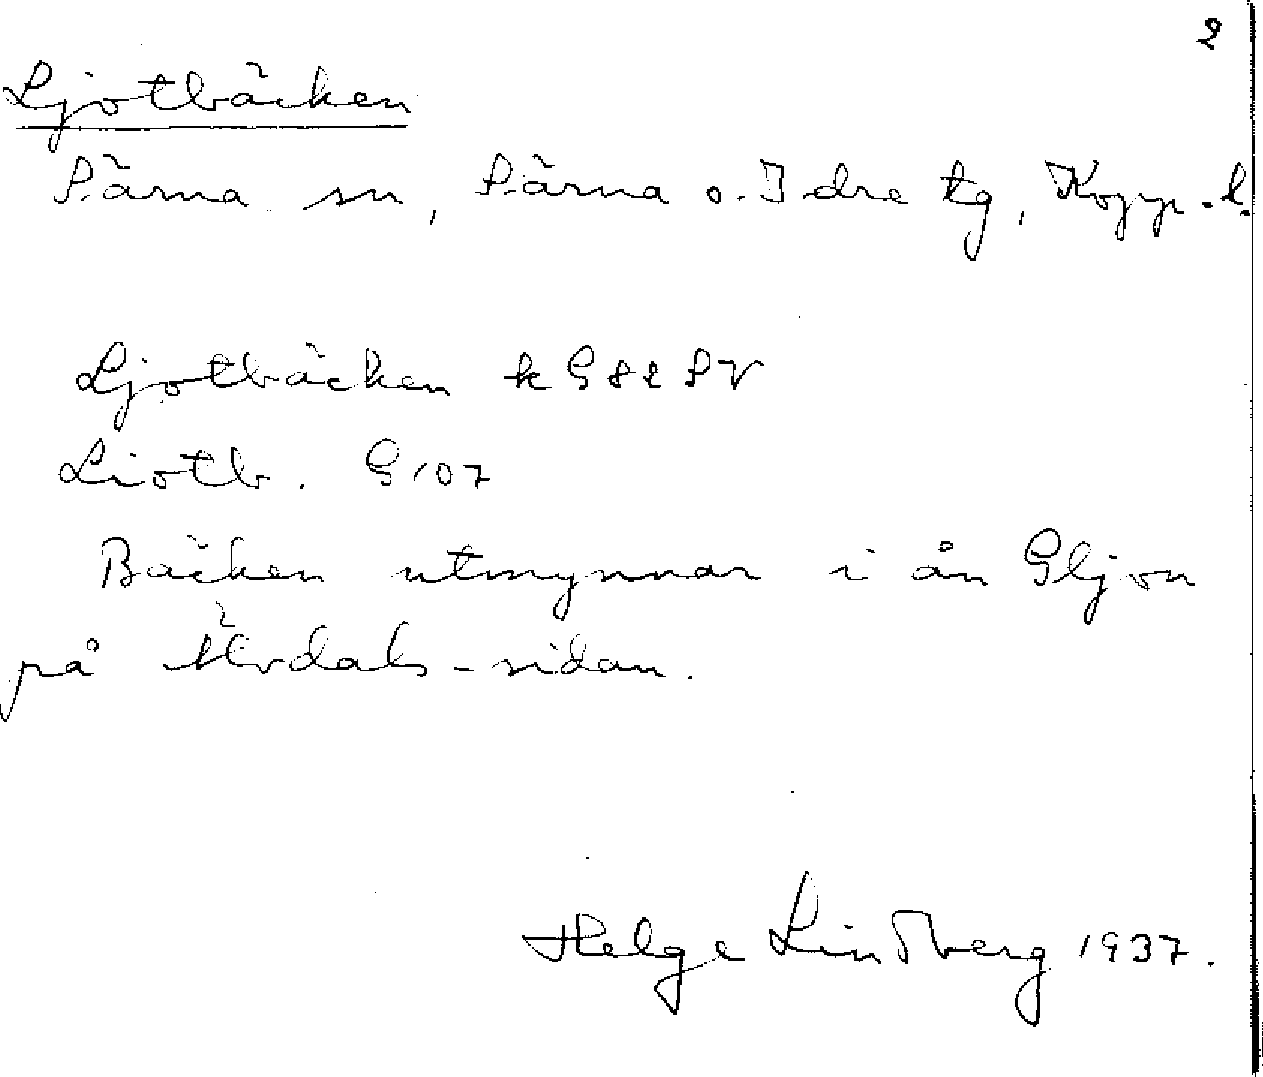 2
Ljotbäcken
Särna sn, Särna o. Idre tg, Kopp. l.
Ljotbäcken k G 82 SV
Liotb. G 107
Bäcken utmynnar i ån Gljon
på Älvdals-sidan.
Helge Lindberg 1937.